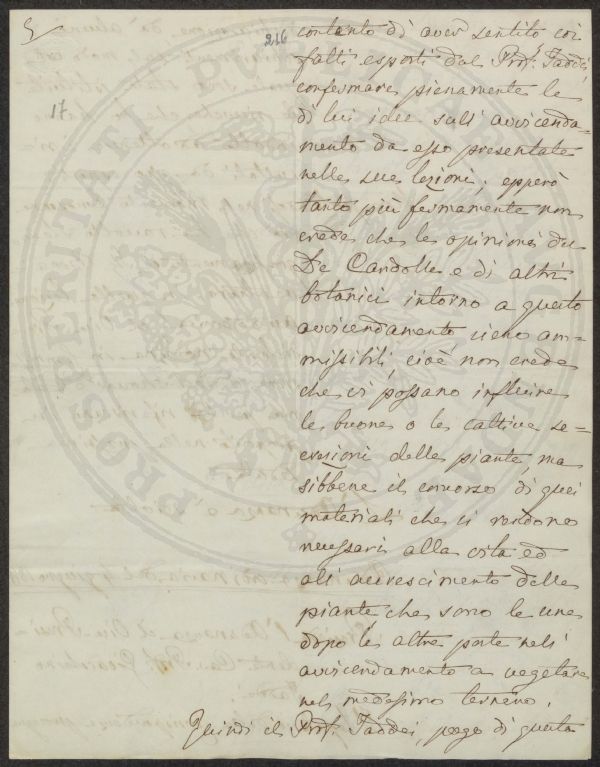 5
216
17
contento di aver sentito coi
fatti esporti dal Prof. Taddei
confermare pienamente le
di lui idee sull'avvicenda-
mento da esso presentate
nelle sue lezioni; epperò
tanto più fermamente non
crede che le opinioni du
De Candolle e di altri
botanici intorno a questo
avvicendamento sieno am=
missibili, cioè non crede
che vi possano influire
le buone o le cattive se=
crezioni delle piante, ma
sibbene il concorso di quei
materiali che si rendono
necessari alla vita ed
all'accrescimento delle
piante che sono le une
dopo le altre poste nell'
avvicendamento a vegetare
nel medesimo terreno.
Quindi il Prof. Taddei, pago di questa
PROSPERITATI PUBLICAE